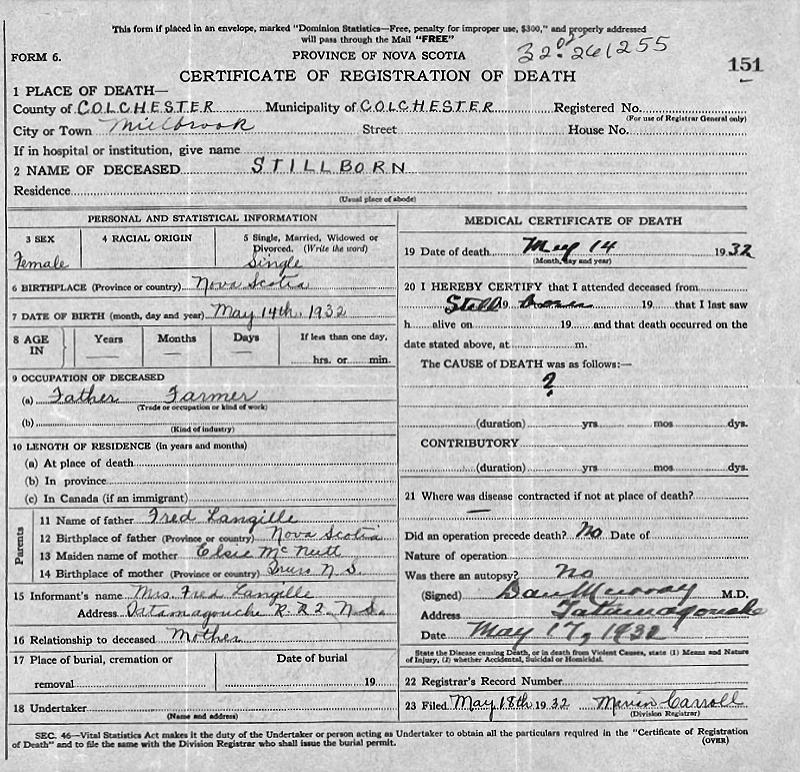 This form if placed in an envelope, marked "Dominion Statistics—Free, penalty for improper use, $300," and properly addressed
will pass through the Mail "FREE"
FORM 6.
PROVINCE OF NOVA SCOTIA
32 261255
CERTIFICATE OF REGISTRATION OF DEATH
151
1 PLACE OF DEATH—
County of COLCHESTER Municipality of COLCHESTER Registered No.
(For use of Registrar General only)
City or Town Millbrook Street House No.
If in hospital or institution, give name
2 NAME OF DECEASED STILLBORN
Residence
(Usual place of abode)
PERSONAL AND STATISTICAL INFORMATION
3 SEX
Female
4 RACIAL ORIGIN
5 Single, Married, Widowed or
Divorced. (Write the word)
Single
6 BIRTHPLACE (Province or country) Nova Scotia
7 DATE OF BIRTH (month, day and year) May 14th, 1932
8 AGE
IN
Years
—
Months
—
Days
—
If less than one day,
hrs. or min.
9 OCCUPATION OF DECEASED
(a) Father Farmer
(Trade or occupation or kind of work)
(b)
(Kind of industry)
10 LENGTH OF RESIDENCE (in years and months)
(a) At place of death
(b) In province
(c) In Canada (if an immigrant)
Parents
11 Name of father Fred Langille
12 Birthplace of father (Province or country) Nova Scotia
13 Maiden name of mother Elsie McNutt
14 Birthplace of mother (Province or country) N.S.
15 Informant's name Mrs. Fred Langille
Address R.R.2. N.S.
16 Relationship to deceased Mother
17 Place of burial, cremation or
removal
Date of burial
19
18 Undertaker
(Name and address)
MEDICAL CERTIFICATE OF DEATH
19 Date of death May 14 1932
(Month, day and year)
20 I HEREBY CERTIFY that I attended deceased from
Still 19 born 19 that I last saw
h alive on 19 and that death occurred on the
date stated above, at m.
The CAUSE of DEATH was as follows:—
?
(duration) yrs. mos. dys.
CONTRIBUTORY
(duration) yrs. mos. dys.
21 Where was disease contracted if not at place of death?
—
Did an operation precede death? No Date of
Nature of operation
Was there an autopsy? No
(Signed) Dan Murray M.D.
Address Tatamagouche
Date May 17, 1932
State the Disease causing Death, or in death from Violent Causes, state (1) Means and Nature
of Injury, (2) whether Accidental, Suicidal or Homicidal.
22 Registrar's Record Number
23 Filed May 18th 1932 Carroll
(Division Registrar)
SEC. 46—Vital Statistics Act makes it the duty of the Undertaker or person acting as Undertaker to obtain all the particulars required in the "Certificate of Registration
of Death" and to file the same with the Division Registrar who shall issue the burial permit.
(OVER)